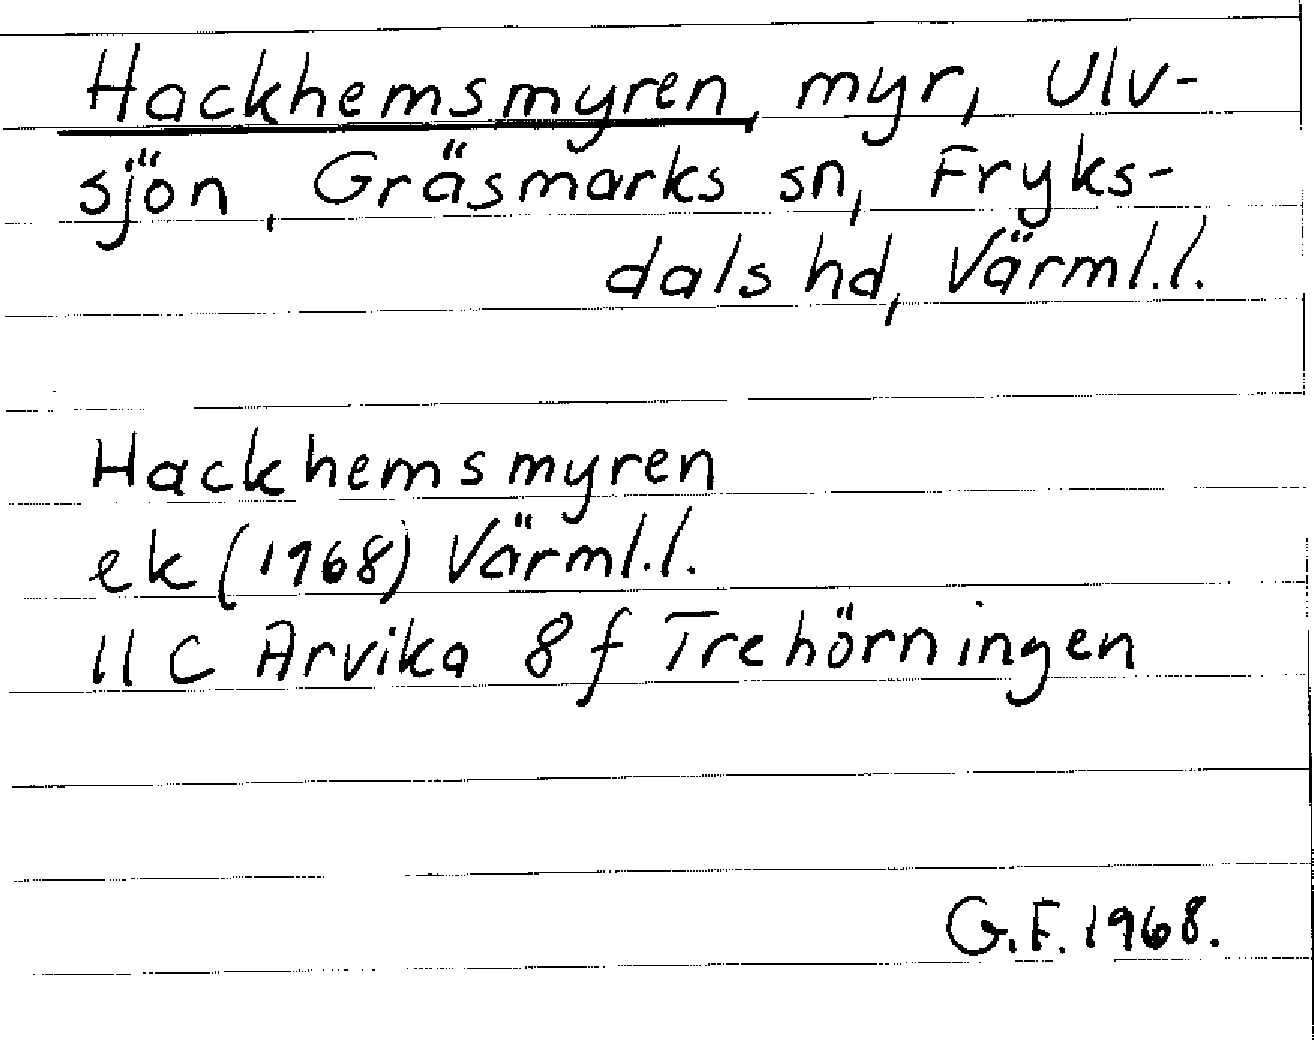 Hackhemsmyren, myr, Ulv-
sjön, Gräsmarks sn, Fryks-
dals hd, Värml.l.
Hackhemsmyren
ek (1968) Värml.l.
11 C Arvika 8 f Trehörningen
G.F. 1968.